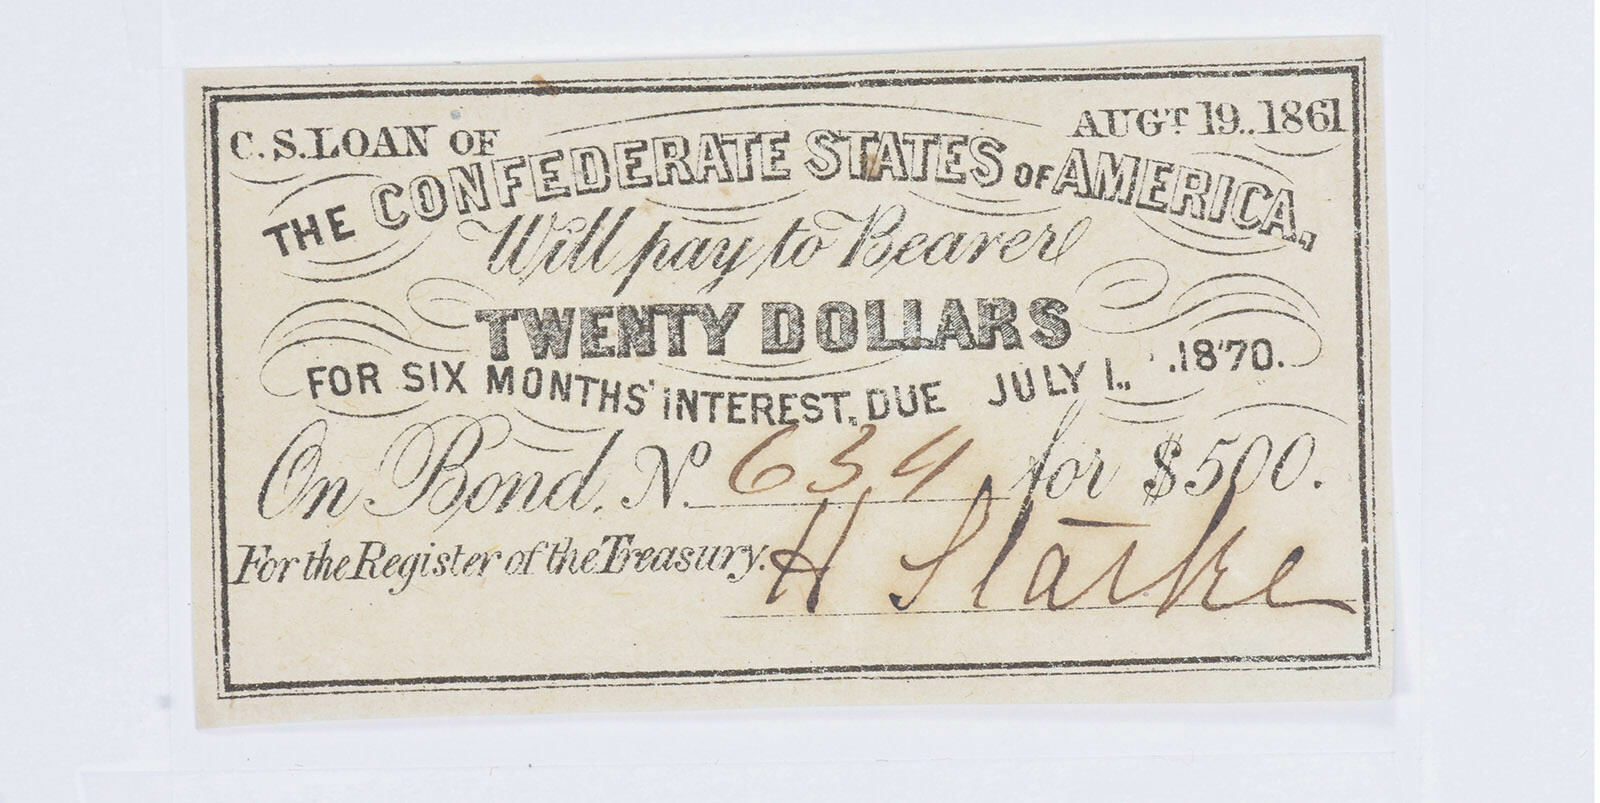 C. S. LOAN OF AUGT 19.. 1861
THE CONFEDERATE STATES OF AMERICA,
Will pay to Bearer
TWENTY DOLLARS
FOR SIX MONTHS' INTEREST, DUE JULY 1., .1870.
On Bond, No. 634 for $500.
For the Register of the Treasury. H Starke